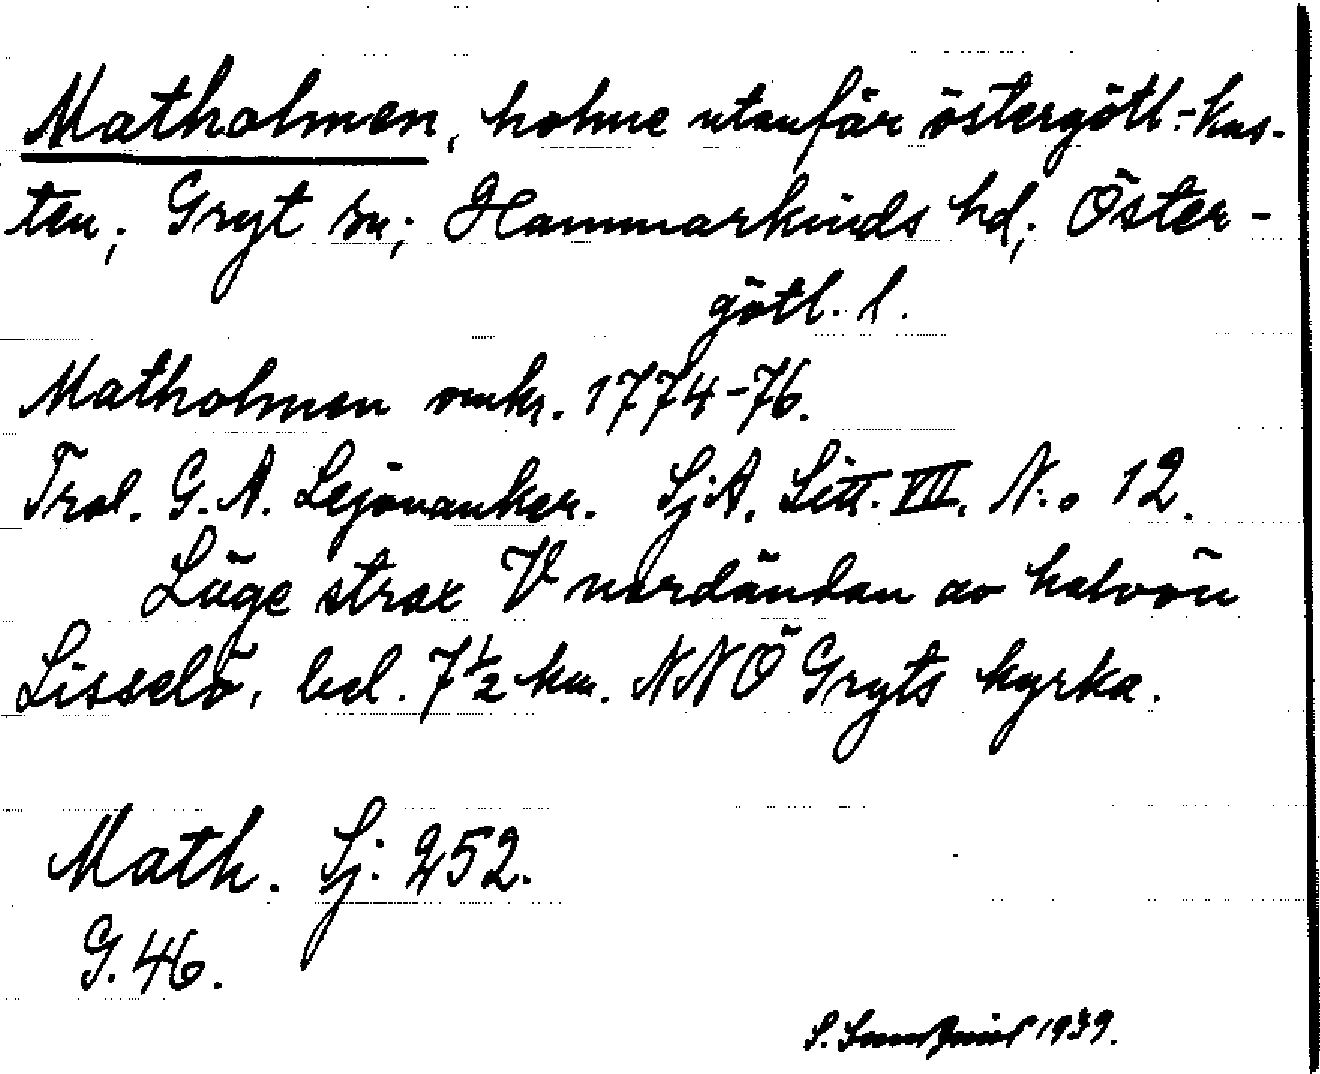 Matholmen, holme utanför östergötl.-kus-
ten; Gryt sn; Hammarkinds hd; Öster-
götl. l.
Matholmen omkr. 1774-76.
Trol. G. A. Lejonanker. SjA. Litt. VII. N:o 12.
Läge strax V nordändan av halvön
Lisselö, bel. 7½ km. NNÖ Gryts kyrka.
Math. Sj: 252.
G. 46.
S. 1939.